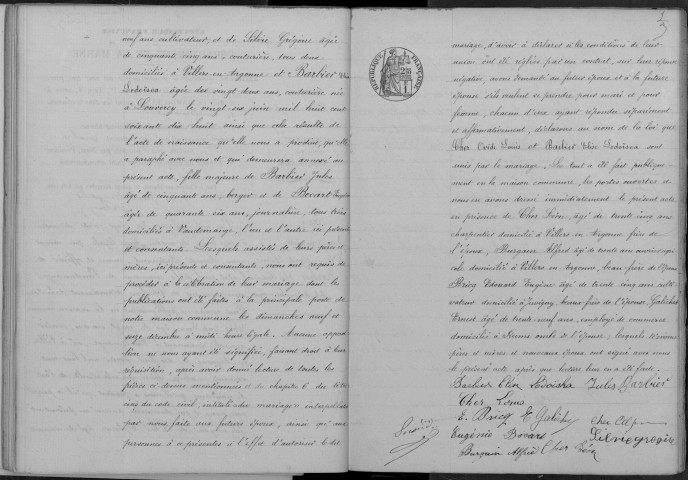 neuf ans cultivateur, et de Grégoire âgée
de cinquante cinq ans, couturière, tous deux
domiciliés à Villers en Argonne et Barbier Elise
Ledoïsca âgée de vingt deux ans, couturière née
à Louvercy le vingt six juin mil huit cent
soixante dix huit ainsi que cela résulte de
l'acte de naissance qu'elle nous a produit, qu'elle
a paraphé avec nous et qui demeurera annexé au
présent acte, fille majeure de Barbier Jules
âgé de cinquante ans, berger et de Bocart
âgée de quarante six ans, journalière, tous trois
domiciliés à Vaudemange, l'un et l'autre ici présents
et consentants. Lesquels assistés de leurs pères et
mères, ici présents et consentants, nous ont requis de
procéder à la célébration de leur mariage dont les
publications ont été faites à la principale porte de
notre maison commune les dimanches neuf et
seize décembre à midi heure légale. Aucune opposi
tion ne nous ayant été signifiée, faisant droit à leur
réquisition, après avoir donné lecture de toutes les
pièces ci dessus mentionnées et du chapitre 6 du titre
cinq du code civil, intitulé du mariage
par nous faite aux futurs époux, ainsi qu'aux
personnes ci présentes à l'effet d'autoriser le dit
REPUBLIQUE FRANÇAISE
mariage, d'avoir à déclarer si les conditions de leur
union ont été réglées par un contrat, sur leur réponse
négative, avons demandé au futur époux et à la future
épouse s'ils veulent se prendre pour mari et pour
femme, chacun d'eux ayant répondu séparément
et affirmativement, déclarons au nom de la loi que
Cher Louis et Barbier Elise Ledoïsca sont
unis par le mariage. Le tout a été fait publique-
ment en la maison commune, les portes ouvertes et
nous en avons dressé immédiatement le présent acte
en présence de Cher Léon âgé de trente cinq ans
charpentier domicilié à Villers en Argonne frère de
l'époux, Burgain Alfred âgé de trente ans ouvrier agri
cole domicilié à Villers en Argonne, beau frère de l'époux
Bricq Edouard Eugène âgé de trente cinq ans culti
vateur domicilié à Juvigny beau frère de l'épouse, Galichet
Ernest âgé de trente neuf ans, employé de commerce
domicilié à Reims oncle de l'épouse, lesquels
pères et mères et nouveaux époux ont signé avec nous
le présent acte après que lecture leur en a été faite.
Barbier Elise Ledoïska Jules Barbier
Cher Louis
E. Bricq E Galichet Cher
Eugénie Bocart
Burgain Alfred Cher Léon